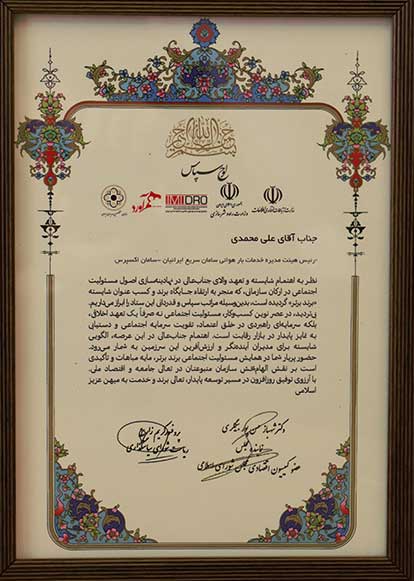 بسم الله الرحمن الرحیم
لوح سپاس
IMIDRO
جناب آقای علی محمدی
رئیس هیئت مدیره خدمات بار هوائی سامان سریع ایرانیان -سامان اکسپرس-
نظر به اهتمام شایسته و تعهد والای جنابعالی در نهادینه‌سازی اصول مسئولیت
اجتماعی در ارکان سازمانی، که منجر به ارتقاء جایگاه برند و کسب عنوان شایسته
«برند برتر» گردیده است، بدین‌وسیله مراتب سپاس و قدردانی این ستاد را ابراز می‌داریم.
بی‌تردید، در عصر نوین کسب‌وکار، مسئولیت اجتماعی نه صرفاً یک تعهد اخلاقی،
بلکه سرمایه‌ای راهبردی در خلق اعتماد، تقویت سرمایه اجتماعی و دستیابی
به تمایز پایدار در بازار رقابت است. اهتمام جنابعالی در این عرصه، الگویی
شایسته برای مدیران آینده‌نگر و ارزش‌آفرین این سرزمین به شمار می‌رود.
حضور پربار شما در همایش مسئولیت اجتماعی برند برتر، مایه مباهات و تأکیدی
است بر نقش الهام‌بخش سازمان متبوعتان در تعالی جامعه و اقتصاد ملی.
با آرزوی توفیق روزافزون در مسیر توسعه پایدار، تعالی برند و خدمت به میهن عزیز
اسلامی
دکتر شهباز حسن پور بیگلری
نماینده مجلس
عضو کمیسیون اقتصادی مجلس شورای اسلامی